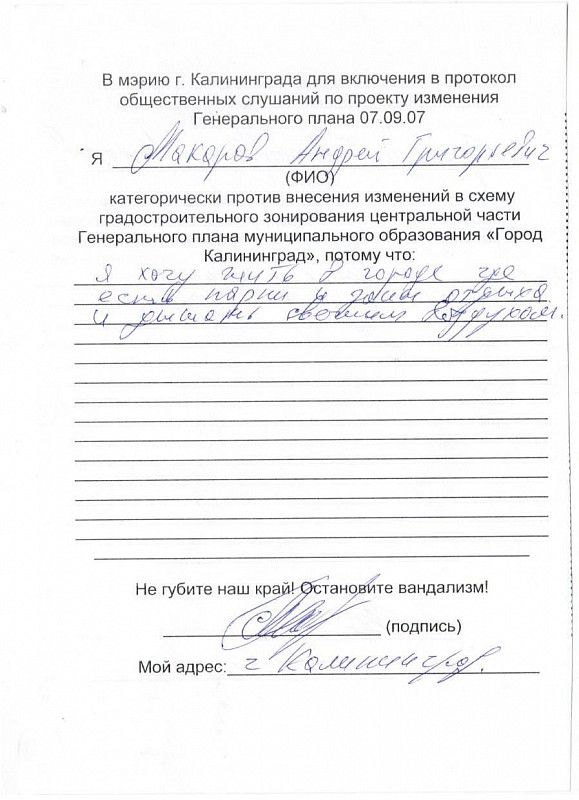 В мэрию г. Калининграда для включения в протокол
общественных слушаний по проекту изменения
Генерального плана 07.09.07
Я Макаров Андрей Григорьевич
(ФИО)
категорически против внесения изменений в схему
градостроительного зонирования центральной части
Генерального плана муниципального образования «Город
Калининград», потому что:
я хочу жить в городе где
есть парки и зоны отдыха
и дышать свежим воздухом.
Не губите наш край! Остановите вандализм!
(подпись)
Мой адрес: г Калининград.